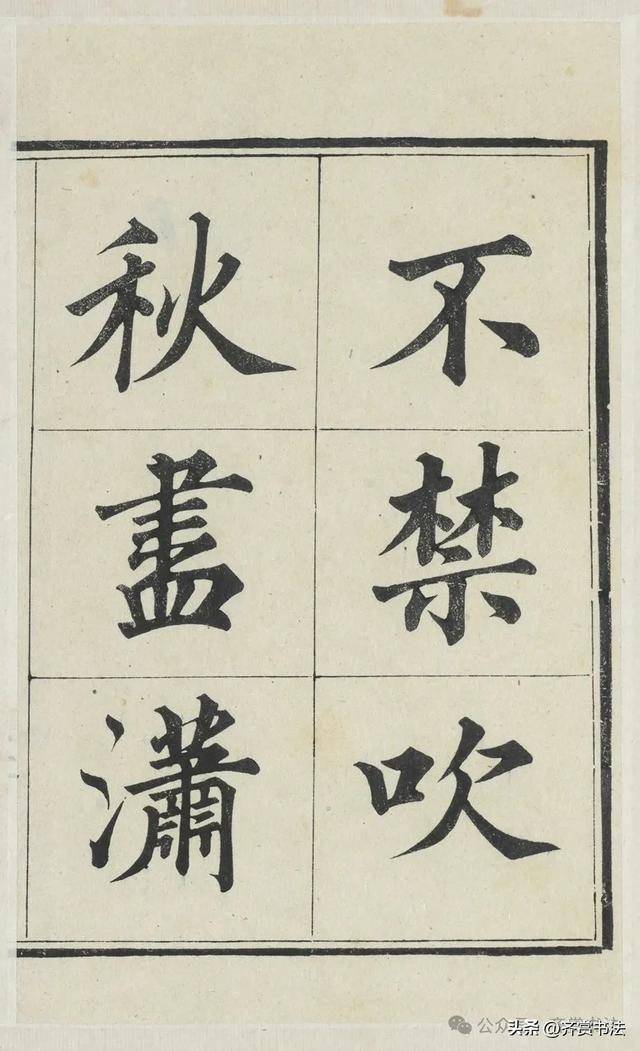 不禁吹
秋盡瀟
头条 @齐赏书法